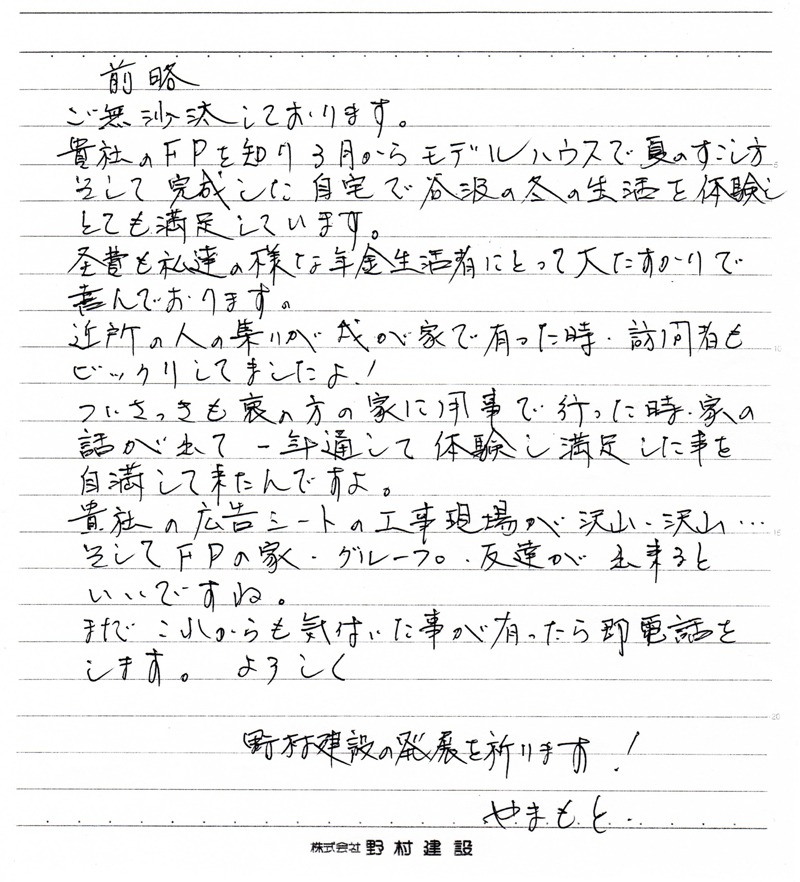 前略
ご無沙汰しております。
貴社のFPを知り3月からモデルハウスで夏のすごし方
そして完成した自宅で谷汲の冬の生活を体験し
とても満足しています。
全費も私達の様な年金生活者にとって大たすかりで
喜んでおります。
近所の人の集りが我が家で有った時・訪問者も
ビックリしてましたよ!
ついさっきも裏の方の家に用事で行った時・家の
話が出て一年通して体験し満足した事を
自満して来たんですよ。
貴社の広告シートの工事現場が沢山・沢山…
そしてFPの家・グループ。・友達が出来ると
いいですね。
まだこれからも気付いた事が有ったら即電話を
します。 よろしく
野村建設の発展を祈ります!
やまもと
株式会社 野村建設
5
10
15
20